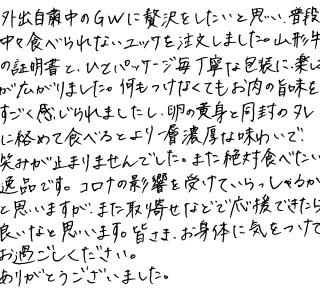 外出自粛中のGWに贅沢をしたいと思い、普段
中々食べられないユッケを注文しました。山形牛
の証明書と、ひとパッケージ毎丁寧な包装に、楽しみ
が広がりました。何もつけなくてもお肉の旨味を
すごく感じられましたし、卵の黄身と同封のタレ
に絡めて食べるとより一層濃厚な味わいで、
笑みが止まりませんでした。また絶対食べたい
逸品です。コロナの影響を受けていらっしゃるか
と思いますが、また取り寄せなどで応援できたら
良いなと思います。皆さま、お身体に気をつけて
お過ごしください。
ありがとうございました。